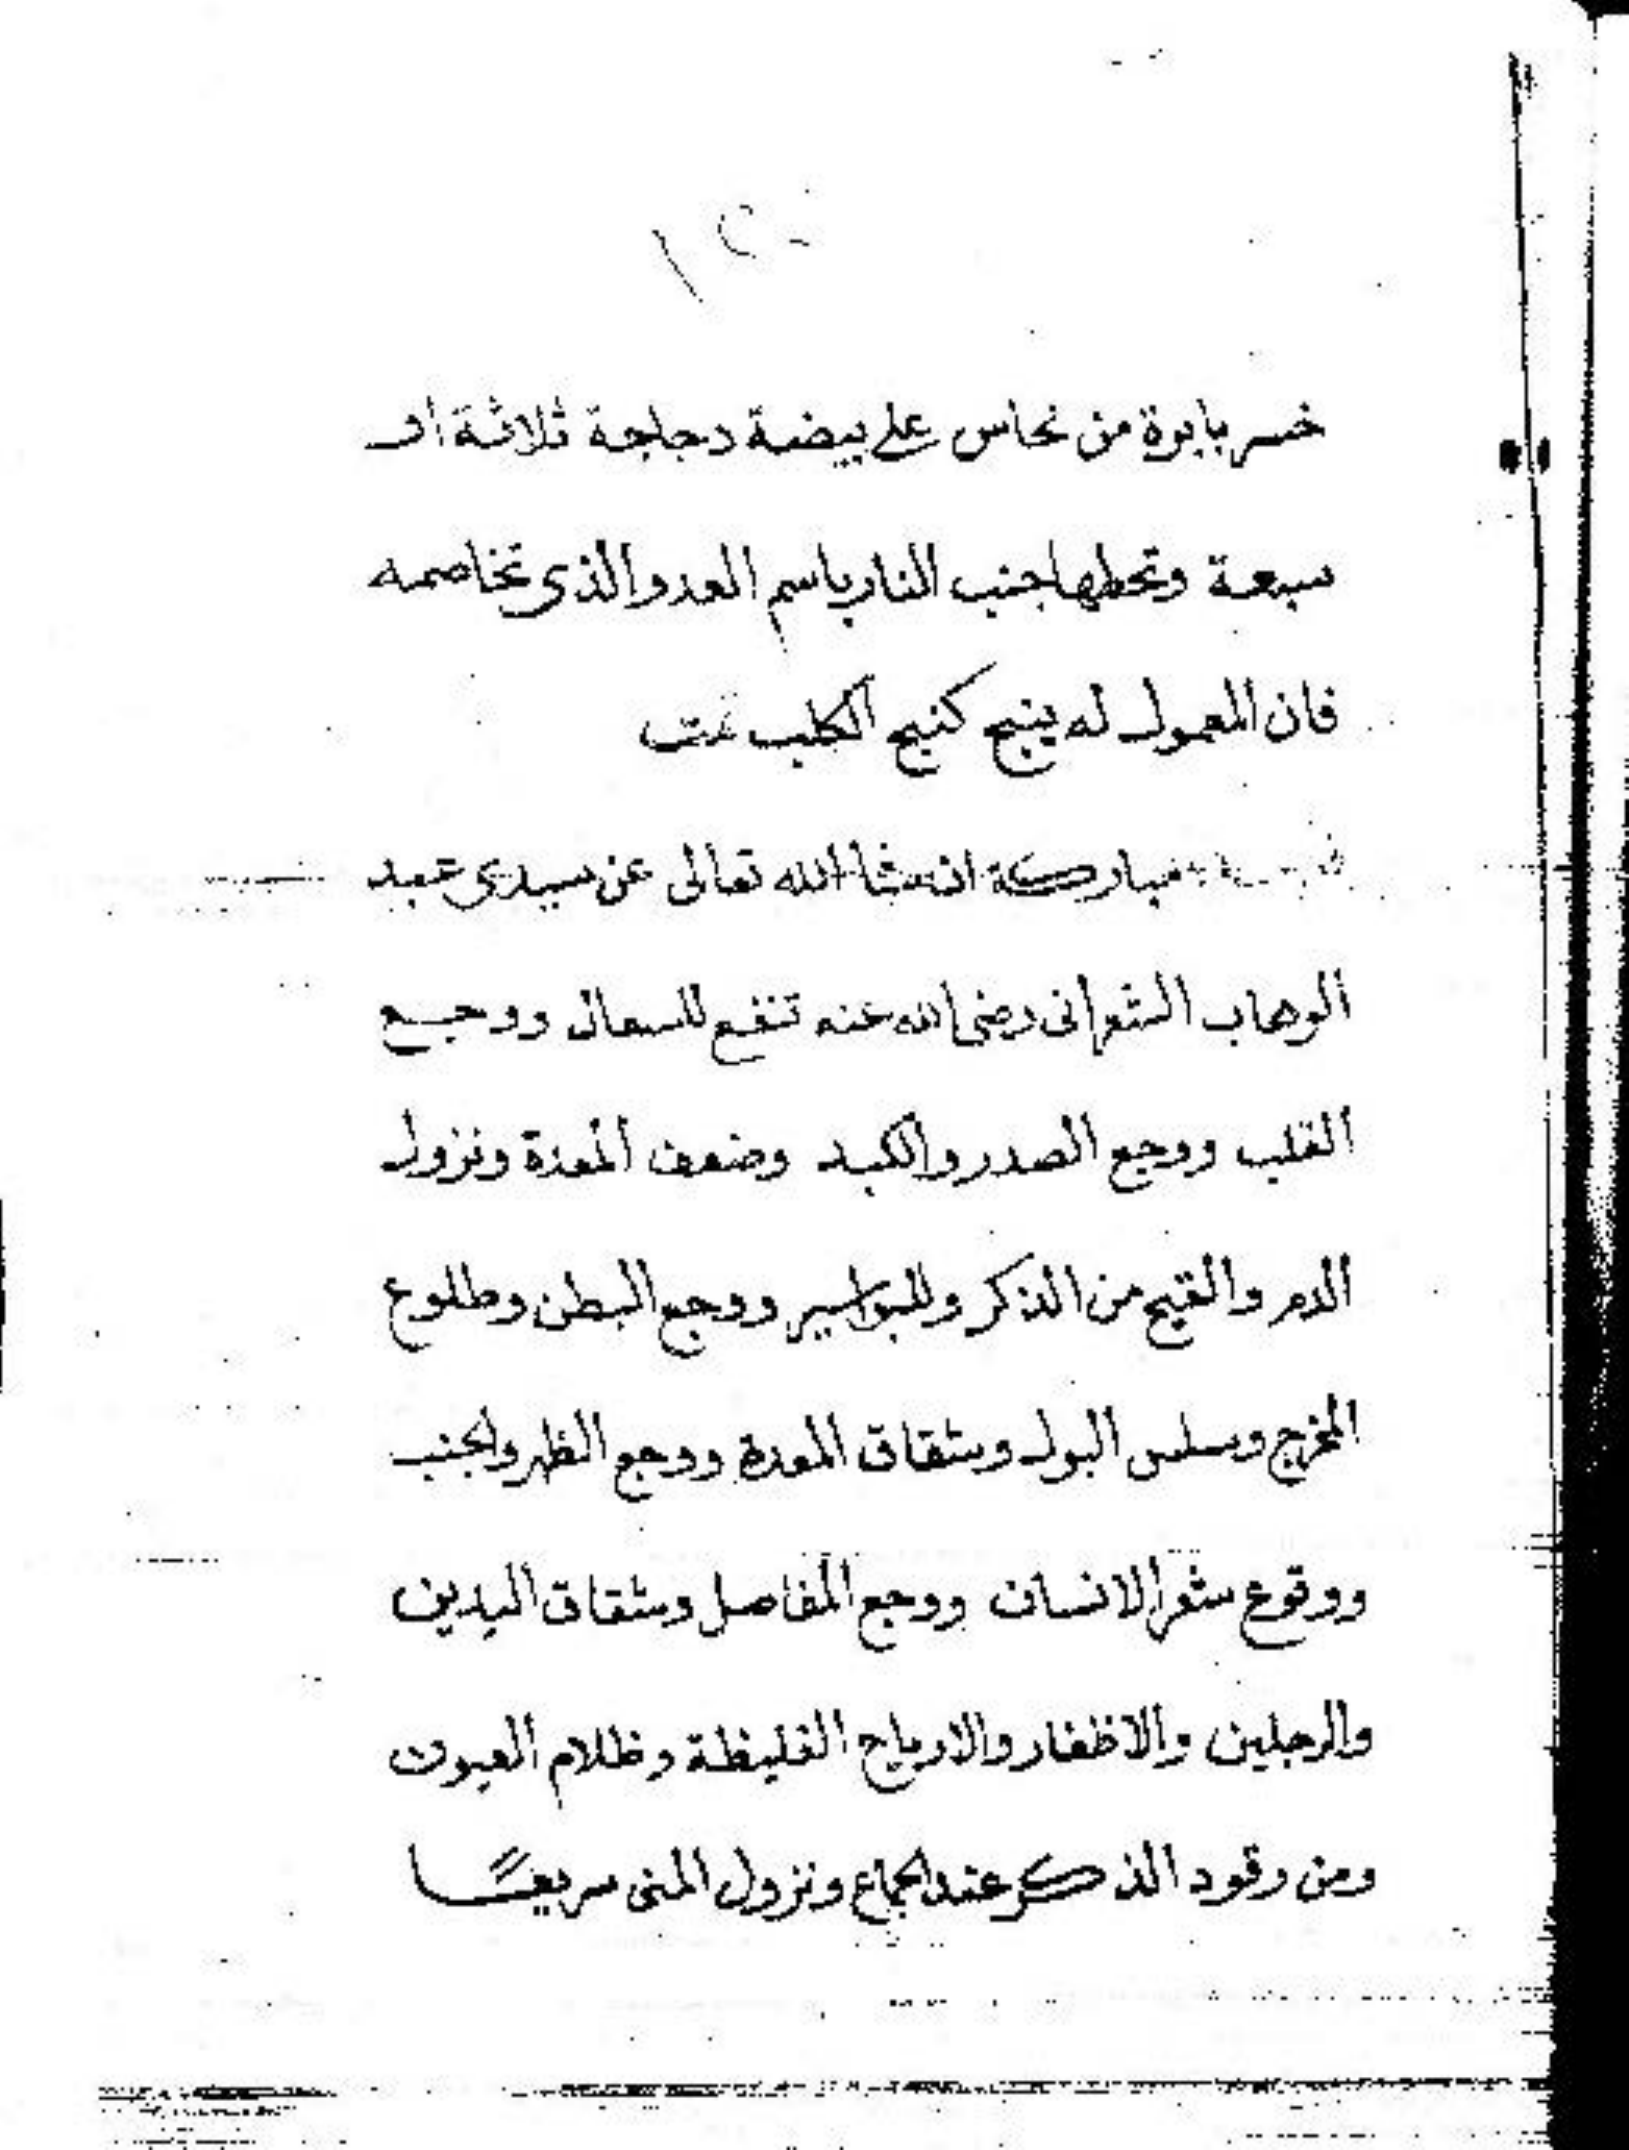 خمر بابرة من نحاس على بيضة دجاجة ثلاثة او
سبعة وتحطها جنب النار باسم العدو الذى تخاصمه
فان المعمول له ينبح كنبح الكلب تمت
مباركة ان شا الله تعالى عن سيدى عبد
الوهاب الشعرانى رضى الله عنه تنفع للسعال ووجع
القلب ووجع الصدر والكبد وضعف المعدة ونزول
الدم والقيح من الذكر وللبواسير ووجع البطن وطلوع
المخرج وسلس البول وشقاق المعدة ووجع الظهر والجنب
ووقوع شعر الانسان ووجع المفاصل وشقاق اليدين
والرجلين والاظفار والارياح الغليظة وظلام العيون
ومن رقود الذكر عند الجماع ونزول المنى سريعًا